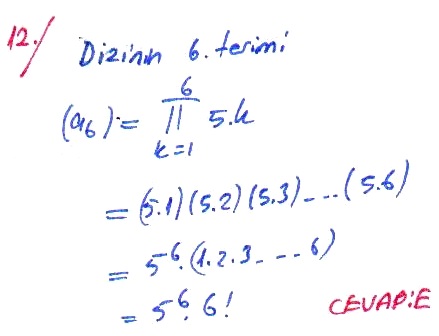 12./ Dizinin 6. terimi
6
(a₆) = ∏ 5.k
k=1
= (5.1)(5.2)(5.3)---(5.6)
= 5⁶.(1.2.3---6)
= 5⁶.6! CEVAP:E